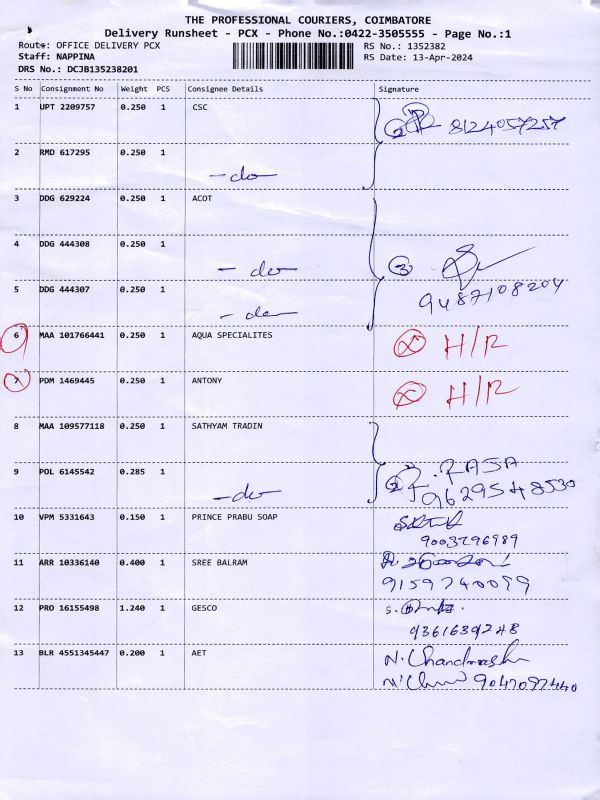 THE PROFESSIONAL COURIERS, COIMBATORE
Delivery Runsheet - PCX - Phone No.:0422-3505555 - Page No.:1
Route: OFFICE DELIVERY PCX
RS No.: 1352382
Staff: NAPPINA
RS Date: 13-Apr-2024
DRS No.: DCJB135238201
S No Consignment No Weight PCS Consignee Details Signature
1 UPT 2209757 0.250 1 CSC
2 8124057257
2 RMD 617295 0.250 1
-do-
3 DDG 629224 0.250 1 ACOT
4 DDG 444308 0.250 1
-do- 3
5 DDG 444307 0.250 1 9487108204
-do-
6 MAA 101766441 0.250 1 AQUA SPECIALITES H/R
7 PDM 1469445 0.250 1 ANTONY H/R
8 MAA 109577118 0.250 1 SATHYAM TRADIN
9 POL 6145542 0.285 1 RAJA
-do- 2 9629548530
10 VPM 5331643 0.150 1 PRINCE PRABU SOAP
9003296989
11 ARR 10336140 0.400 1 SREE BALRAM
9159740099
12 PRO 16155498 1.240 1 GESCO
13 BLR 4551345447 0.200 1 AET N. Chandrash
9047097440